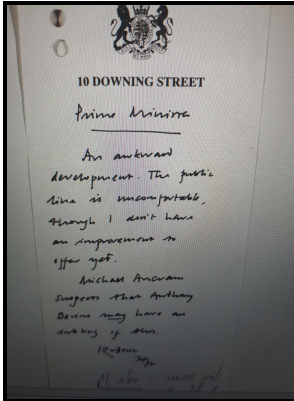 10 DOWNING STREET
Prime Minister
An awkward
development. The public
line is uncomfortable,
though I don't have
an improvement to
offer yet.
Michael Ancram
suspects that Anthony
Bevins may have an
inkling of this.